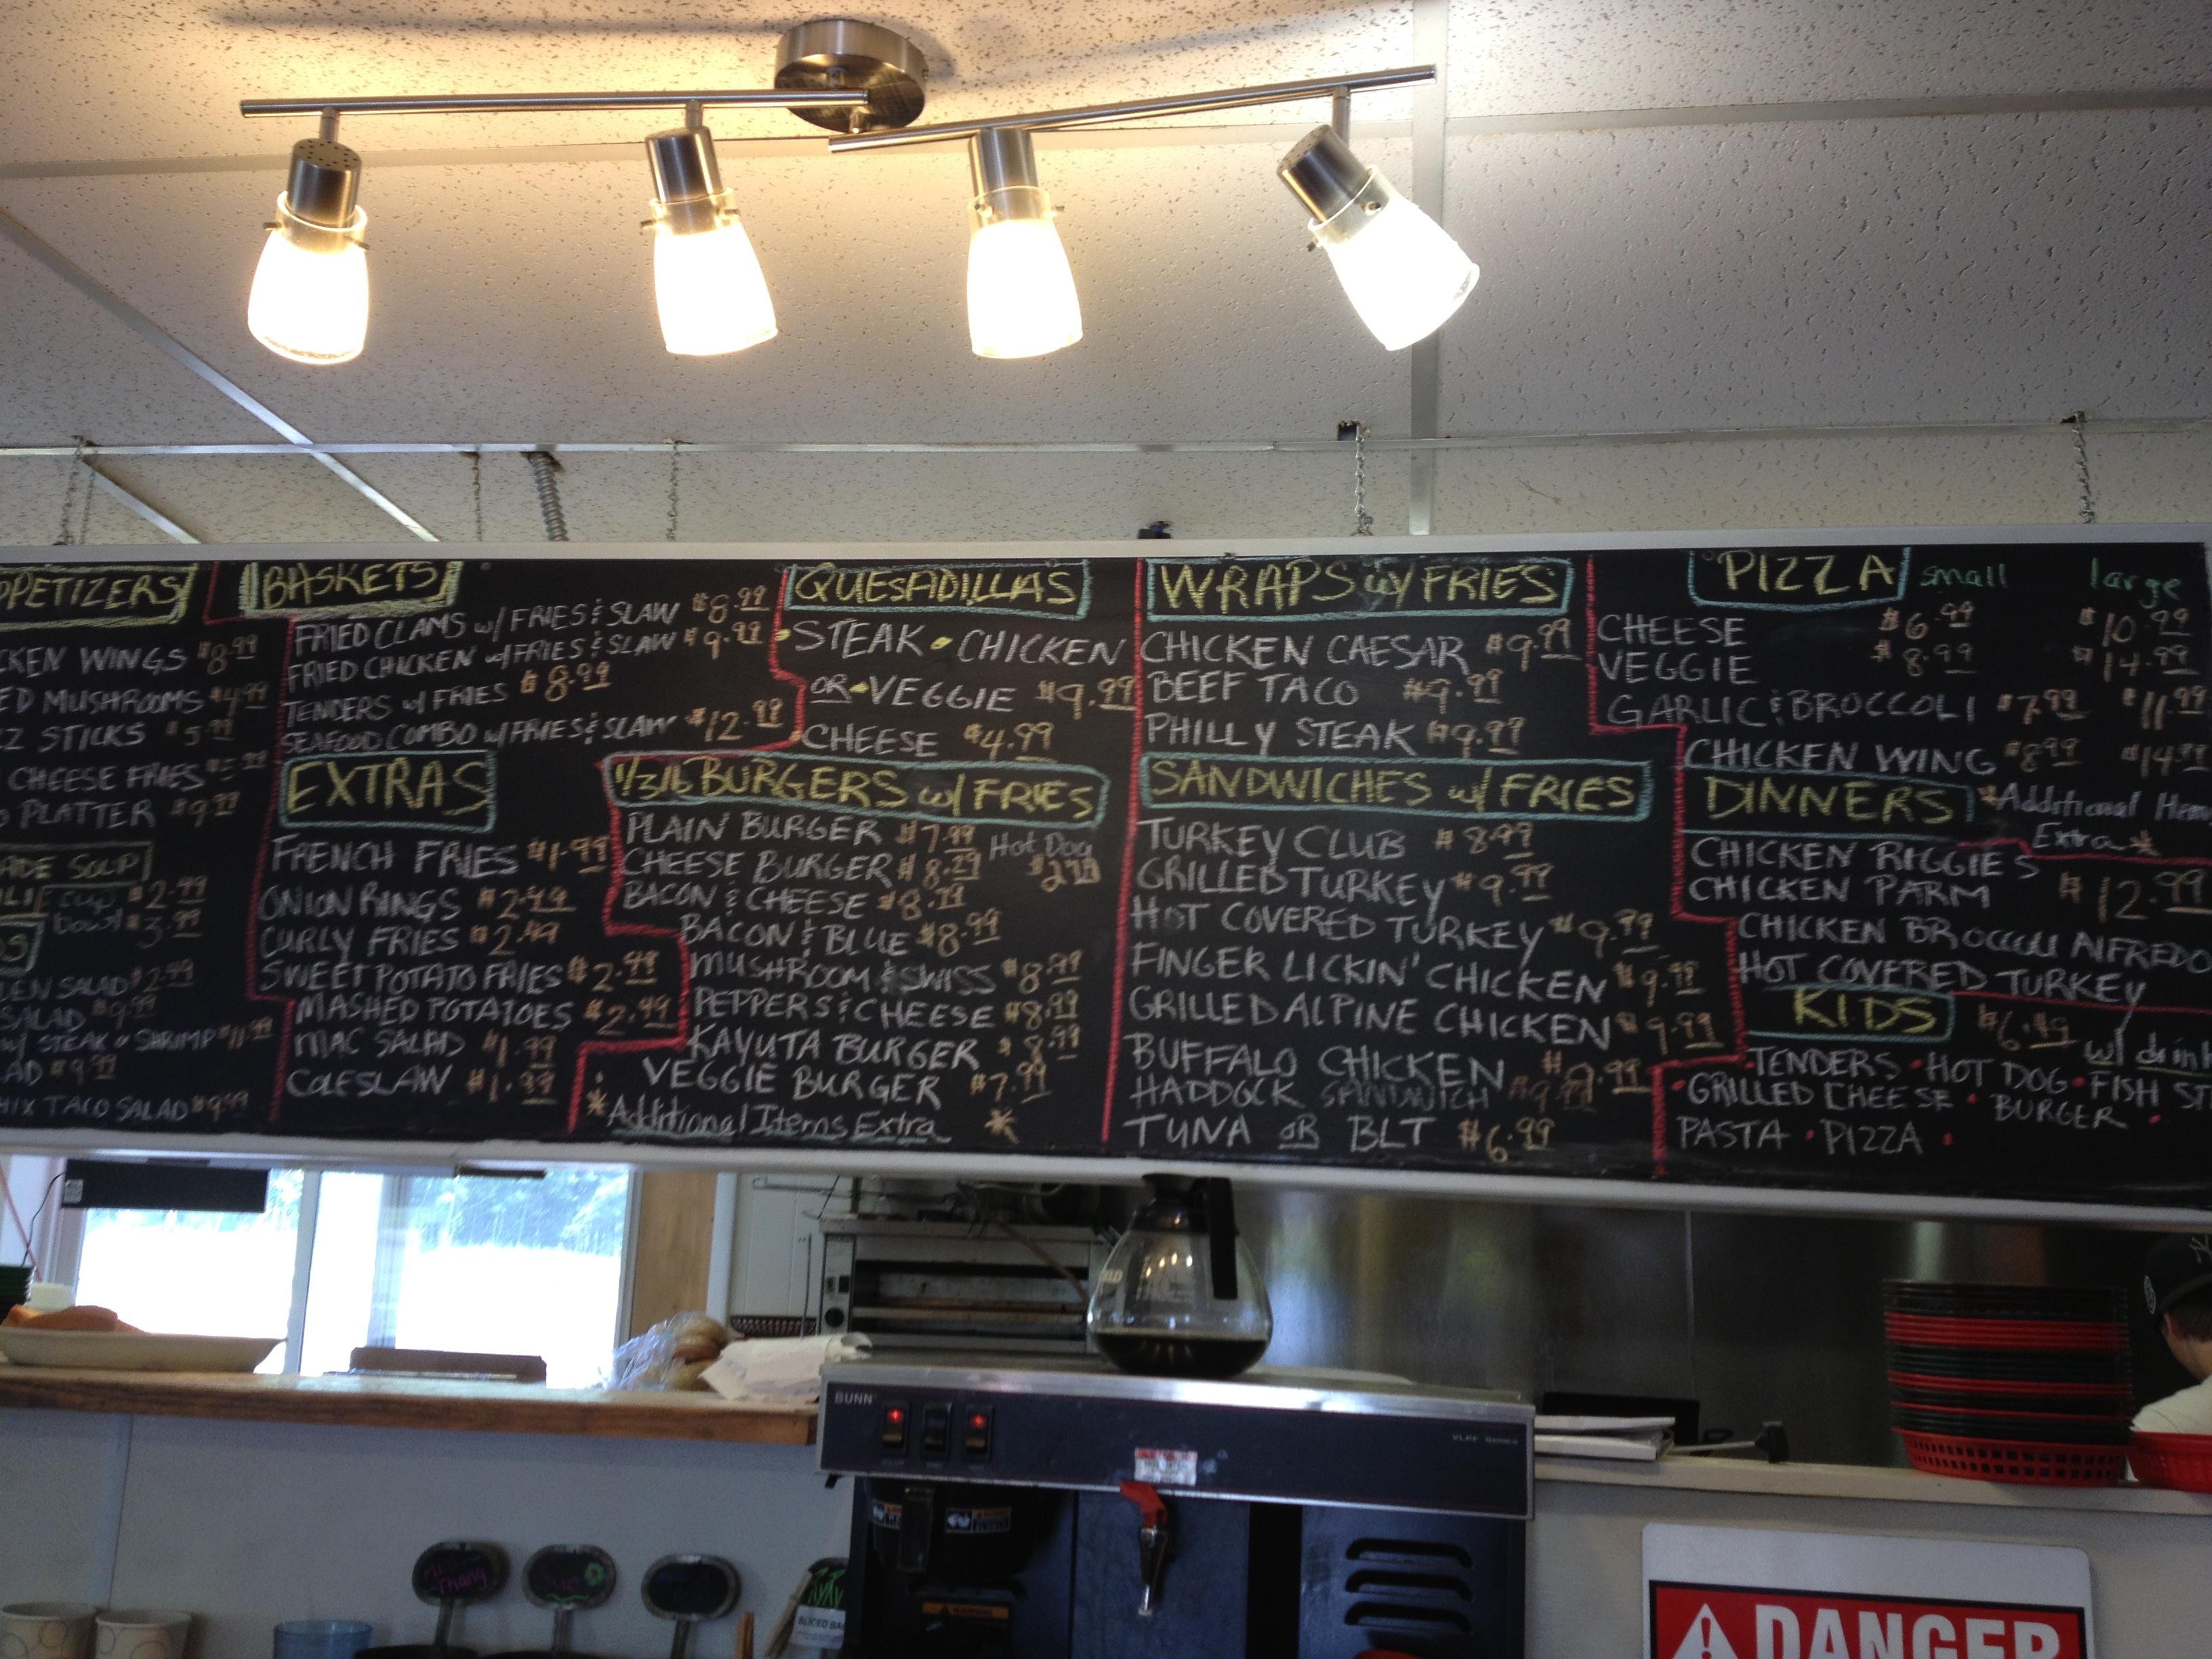 PPETIZERS
CKEN WINGS $8.99
ED MUSHROOMS $4.99
ZZ STICKS $5.99
CHEESE FRIES $5.99
O PLATTER $9.99
ADE SOUP
cup $2.99
bowl $3.99
DS
DEN SALAD $2.49
SALAD $9.99
w/ STEAK OR SHRIMP $11.99
LAD $9.99
HIX TACO SALAD $9.99
BASKETS
FRIED CLAMS w/ FRIES & SLAW $8.99
FRIED CHICKEN w/ FRIES & SLAW $9.99
TENDERS w/ FRIES $8.99
SEAFOOD COMBO w/ FRIES & SLAW $12.99
EXTRAS
FRENCH FRIES $1.99
ONION RINGS $2.49
CURLY FRIES $2.49
SWEET POTATO FRIES $2.49
MASHED POTATOES $2.49
MAC SALAD $1.99
COLESLAW $1.99
QUESADILLAS
STEAK • CHICKEN
OR • VEGGIE $9.99
CHEESE $4.99
1/3 lb BURGERS w/ FRIES
PLAIN BURGER $7.99
CHEESE BURGER $8.29
Hot Dog
BACON & CHEESE $8.79
BACON & BLUE $8.99
MUSHROOM & SWISS $8.99
PEPPERS & CHEESE $8.99
KAYUTA BURGER $8.99
VEGGIE BURGER $7.99
*Additional Items Extra *
WRAPS w/ FRIES
CHICKEN CAESAR $9.99
BEEF TACO $9.99
PHILLY STEAK $9.99
SANDWICHES w/ FRIES
TURKEY CLUB $8.99
GRILLED TURKEY $9.99
HOT COVERED TURKEY $9.99
FINGER LICKIN' CHICKEN $9.99
GRILLED ALPINE CHICKEN $9.99
BUFFALO CHICKEN $9.99
HADDOCK SANDWICH $9.99
TUNA OR BLT $6.99
PIZZA small large
CHEESE $6.99 $10.99
VEGGIE $8.99 $14.99
GARLIC & BROCCOLI $7.99 $11.99
CHICKEN WING $8.99 $14.99
DINNERS
*Additional Item
Extra*
CHICKEN RIGGIES
CHICKEN PARM $12.99
CHICKEN BROCCOLI ALFREDO
HOT COVERED TURKEY
KIDS $6.49 w/ drink
• TENDERS • HOT DOG • FISH ST
• GRILLED CHEESE • BURGER •
PASTA • PIZZA •
BUNN
VLPF SERIES
SLICED BA
DANGER